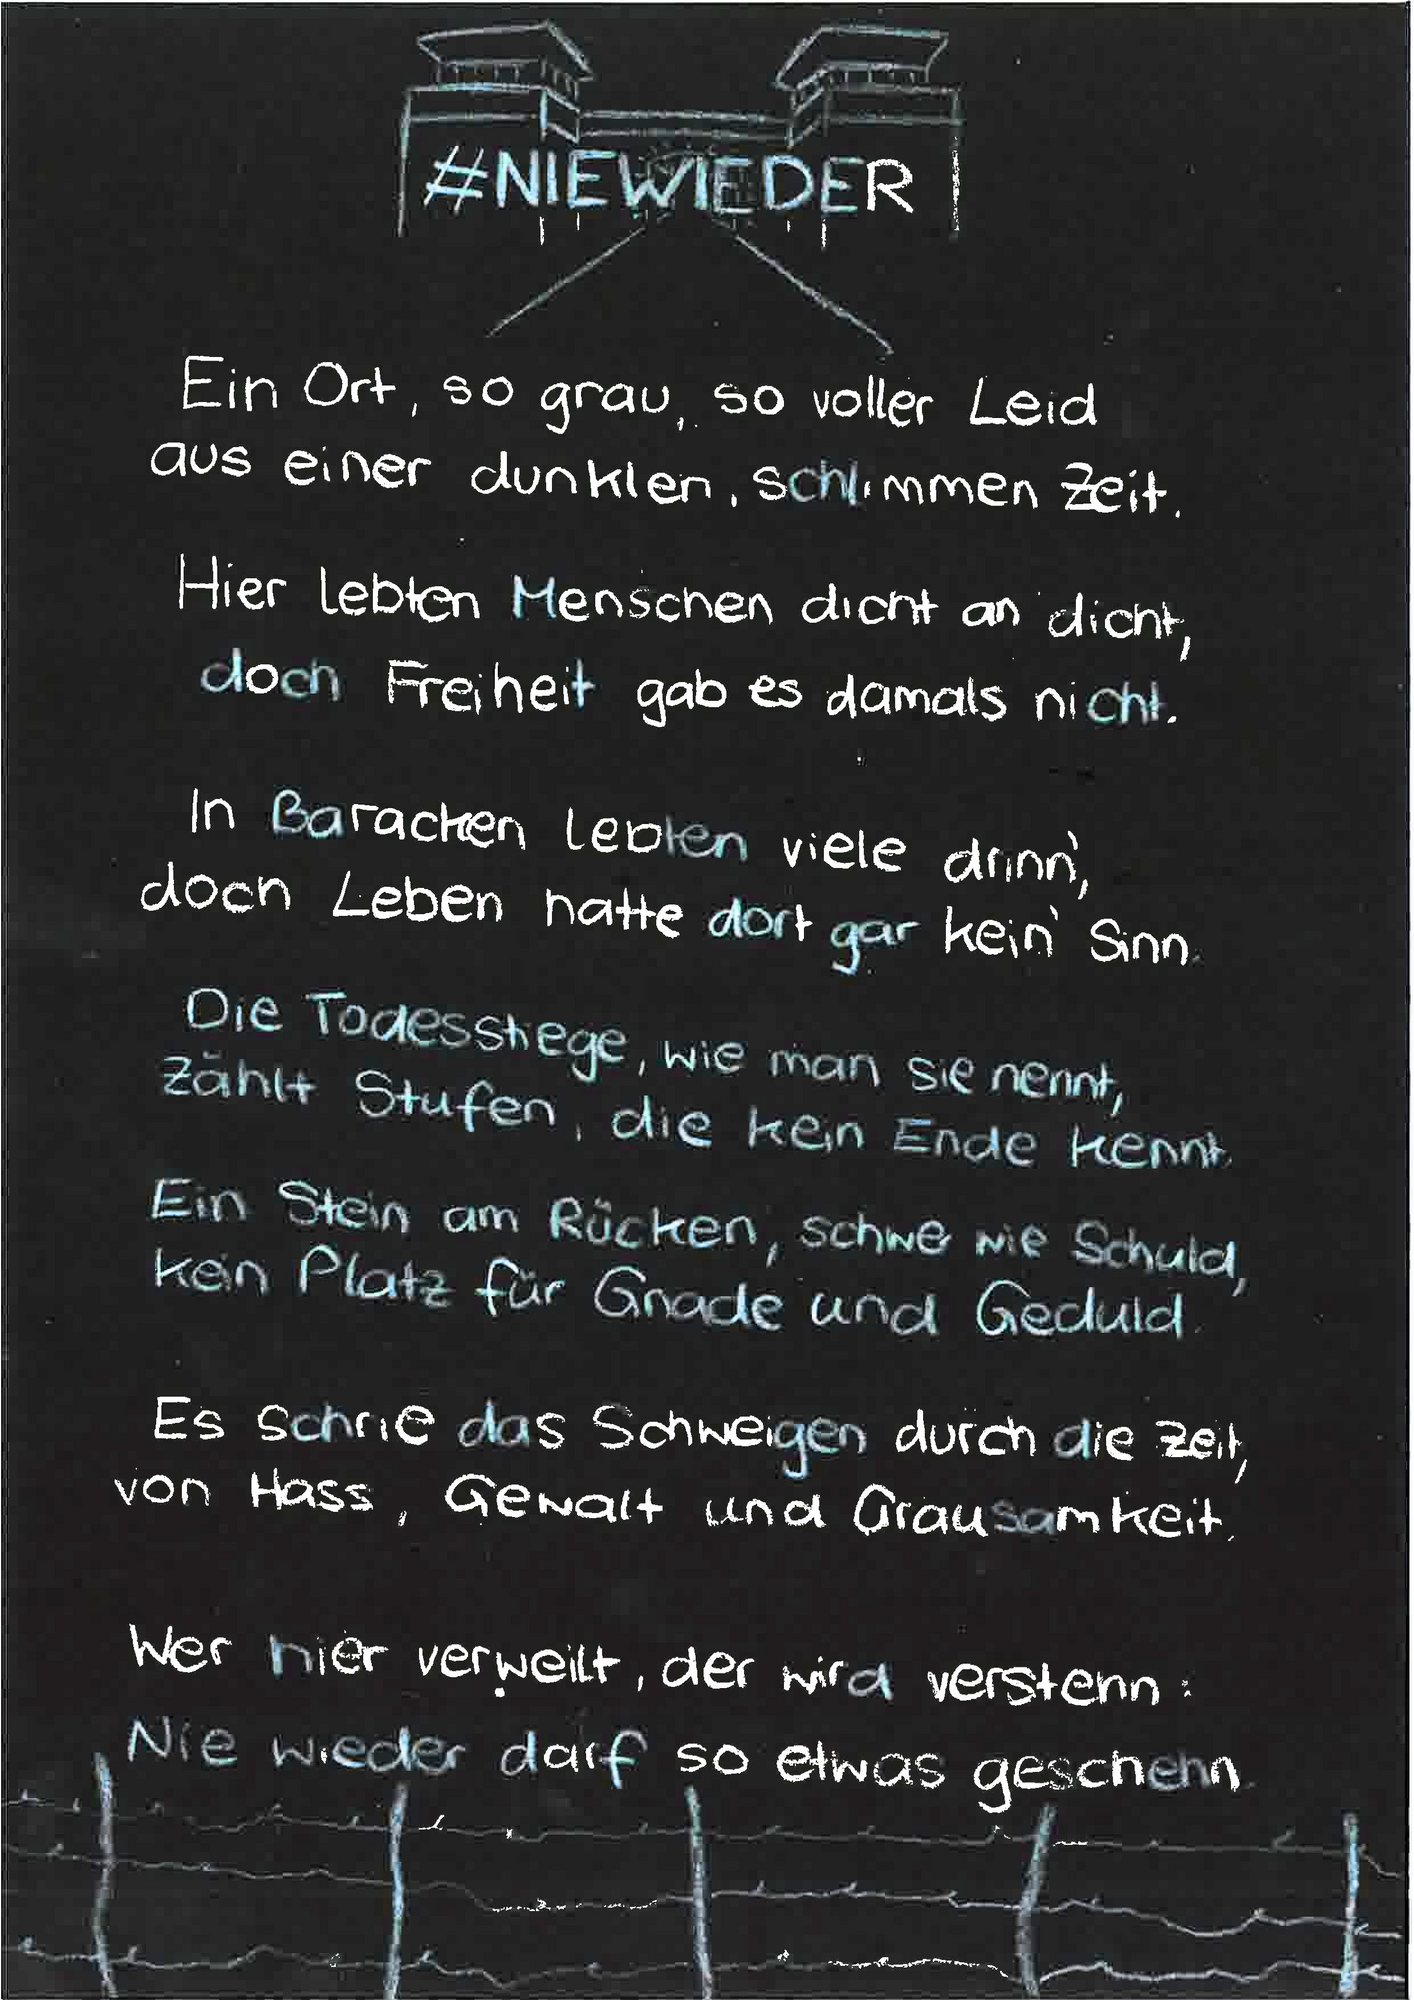 #NIEWIEDER
Ein Ort, so grau, so voller Leid
aus einer dunklen, schlimmen Zeit.
Hier lebten Menschen dicht an dicht,
doch Freiheit gab es damals nicht.
In Baracken lebten viele drinn',
doch Leben hatte dort gar kein' Sinn.
Die Todesstiege, wie man sie nennt,
Zählt Stufen, die kein Ende kennt.
Ein Stein am Rücken, schwer wie Schuld,
kein Platz für Gnade und Geduld.
Es schrie das Schweigen durch die Zeit,
von Hass, Gewalt und Grausamkeit.
Wer hier verweilt, der wird verstehn:
Nie wieder darf so etwas geschehn.